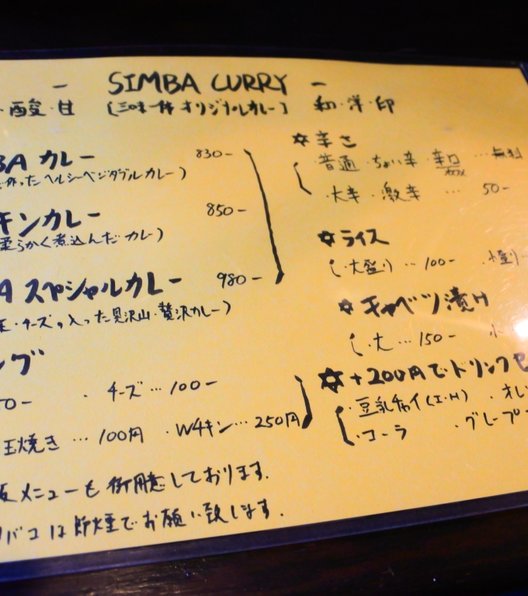 - SIMBA CURRY -
・酸・甘 (三味一体 オリジナルカレー) 和・洋・印
BA カレー 830-
作ったヘルシーベジタブルカレー)
キンカレー 850-
柔らかく煮込んだカレー)
A スペシャルカレー 980-
・チーズの入った具沢山・贅沢カレー)
ング
0- ・チーズ…100-
玉焼き…100円 ・Wチキン…250円
メニューも御用意しております.
バコは 禁煙でお願い致します.
☆辛さ
普通・ちょい辛・辛口…無料
・大辛・激辛… 50-
☆ライス
(・大盛り)…100-
☆キャベツ漬け
(・大…150-
☆+200円でドリンクセ
・豆乳チャイ(I・H) ・オレ
・コーラ ・グレープ